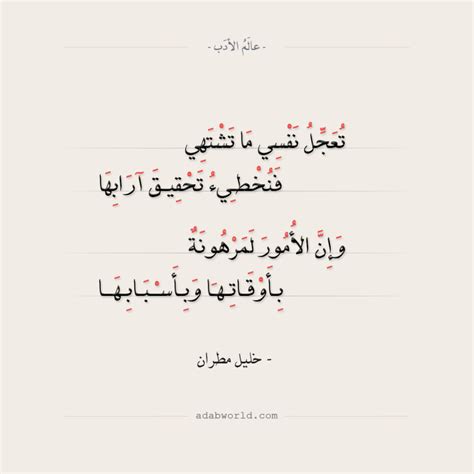 - عالَمُ الأدَب -
تُعَجِّلُ نَفْسِي مَا تَشْتَهِي
فَتُخْطِيءُ تَحْقِيقَ آرَابِهَا
وَإِنَّ الأُمُورَ لَمَرْهُونَةٌ
بِأَوْقَاتِهَا وَبِأَسْبَابِهَا
- خليل مطران
adabworld.com